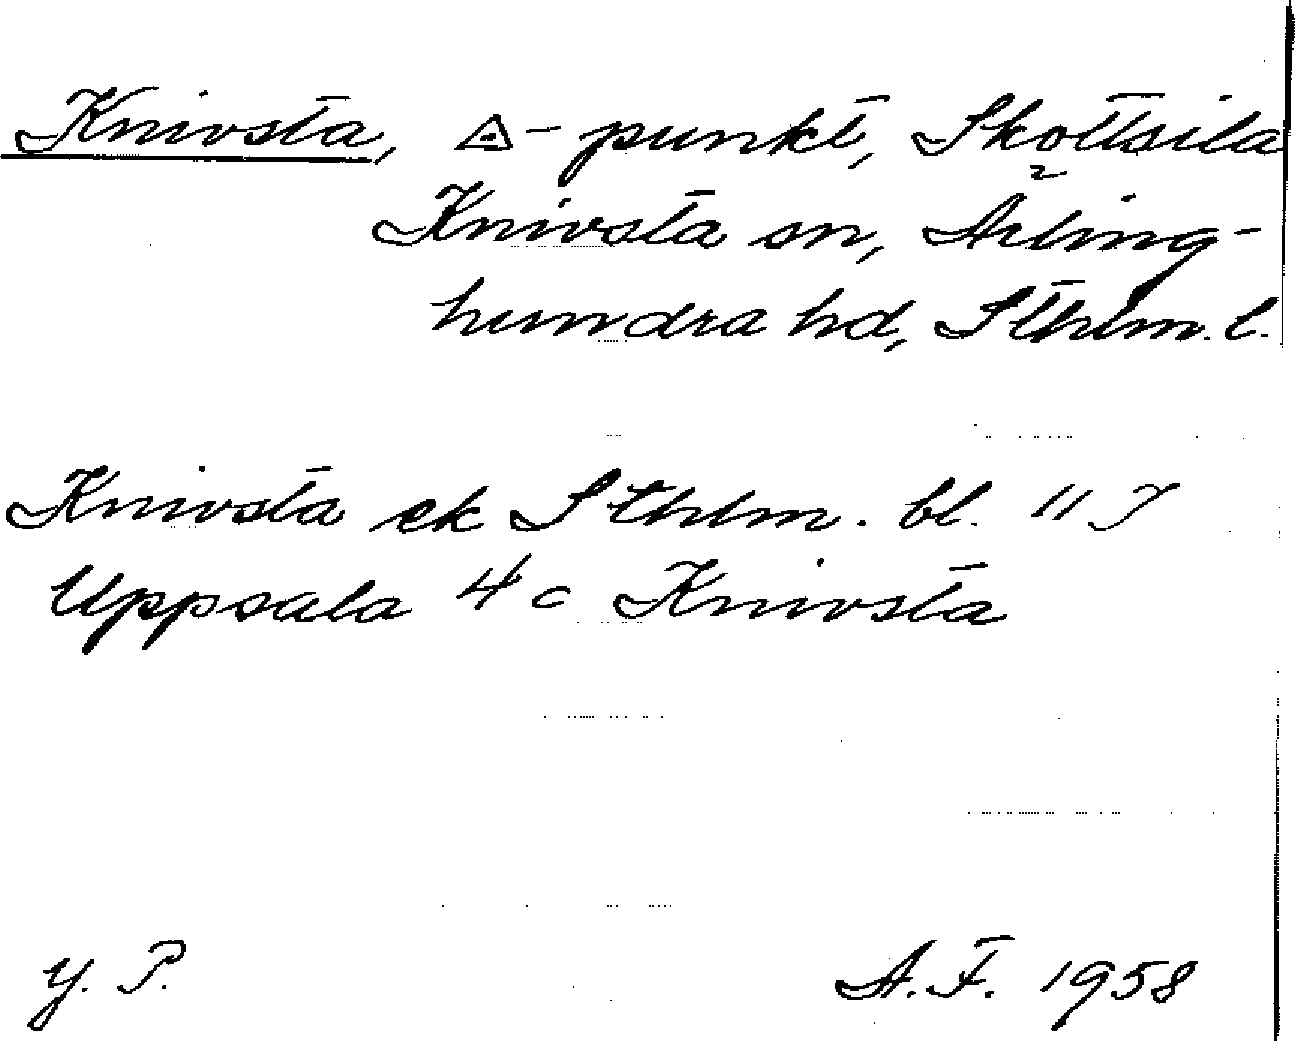 Knivsta, △-punkt, Skottsila
Knivsta sn, Ärling-
hundra hd, Sthlm. l.
Knivsta ek Sthlm. bl. 11 I
Uppsala 4 c Knivsta
y. P. A. F. 1958